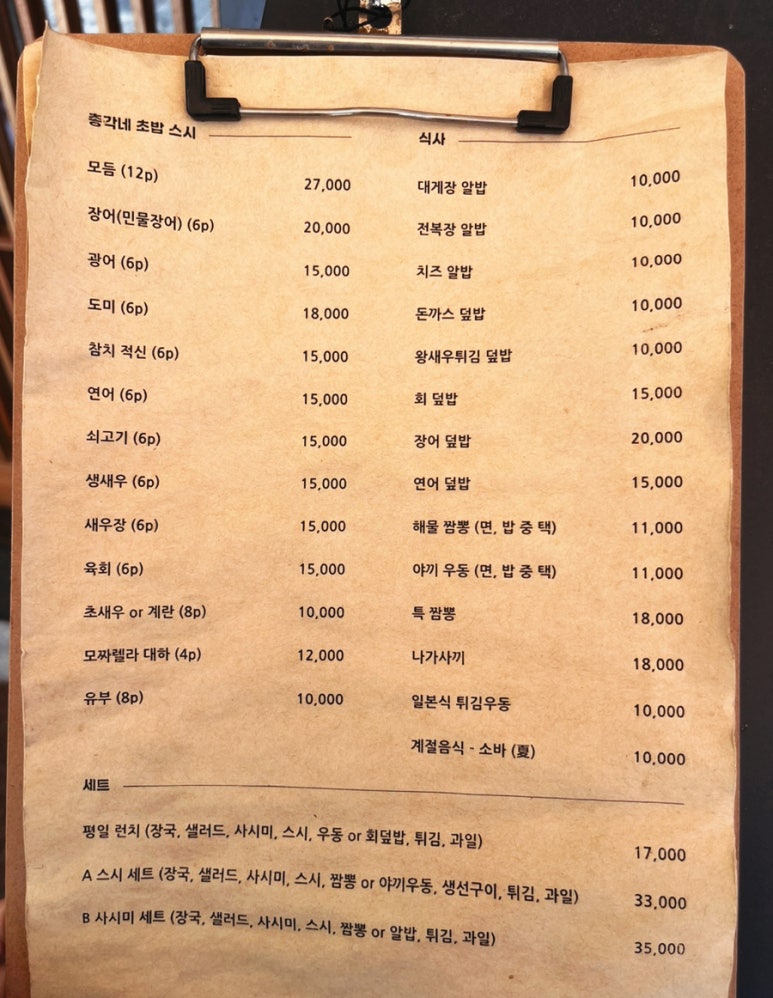 총각네 초밥 스시
모듬 (12p) 27,000
장어(민물장어) (6p) 20,000
광어 (6p) 15,000
도미 (6p) 18,000
참치 적신 (6p) 15,000
연어 (6p) 15,000
쇠고기 (6p) 15,000
생새우 (6p) 15,000
새우장 (6p) 15,000
육회 (6p) 15,000
초새우 or 계란 (8p) 10,000
모짜렐라 대하 (4p) 12,000
유부 (8p) 10,000
식사
대게장 알밥 10,000
전복장 알밥 10,000
치즈 알밥 10,000
돈까스 덮밥 10,000
왕새우튀김 덮밥 10,000
회 덮밥 15,000
장어 덮밥 20,000
연어 덮밥 15,000
해물 짬뽕 (면, 밥 중 택) 11,000
야끼 우동 (면, 밥 중 택) 11,000
특 짬뽕 18,000
나가사끼 18,000
일본식 튀김우동 10,000
계절음식 - 소바 (夏) 10,000
세트
평일 런치 (장국, 샐러드, 사시미, 스시, 우동 or 회덮밥, 튀김, 과일) 17,000
A 스시 세트 (장국, 샐러드, 사시미, 스시, 짬뽕 or 야끼우동, 생선구이, 튀김, 과일) 33,000
B 사시미 세트 (장국, 샐러드, 사시미, 스시, 짬뽕 or 알밥, 튀김, 과일) 35,000